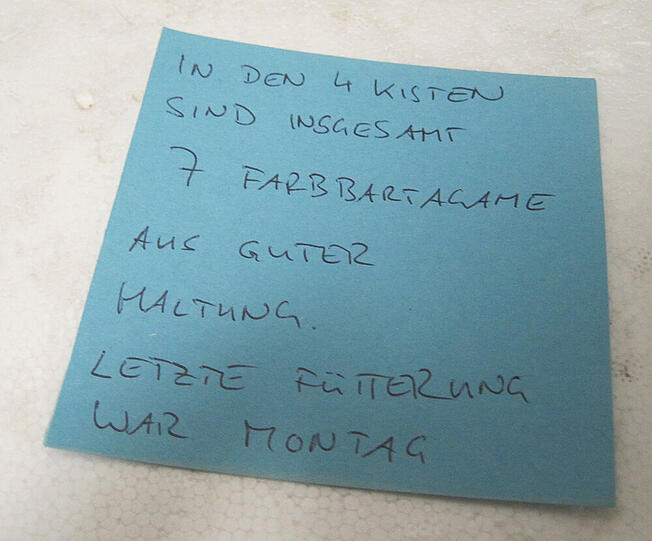 IN DEN 4 KISTEN
SIND INSGESAMT
7 FARBBARTAGAME
AUS GUTER
HALTUNG.
LETZTE FÜTTERUNG
WAR MONTAG